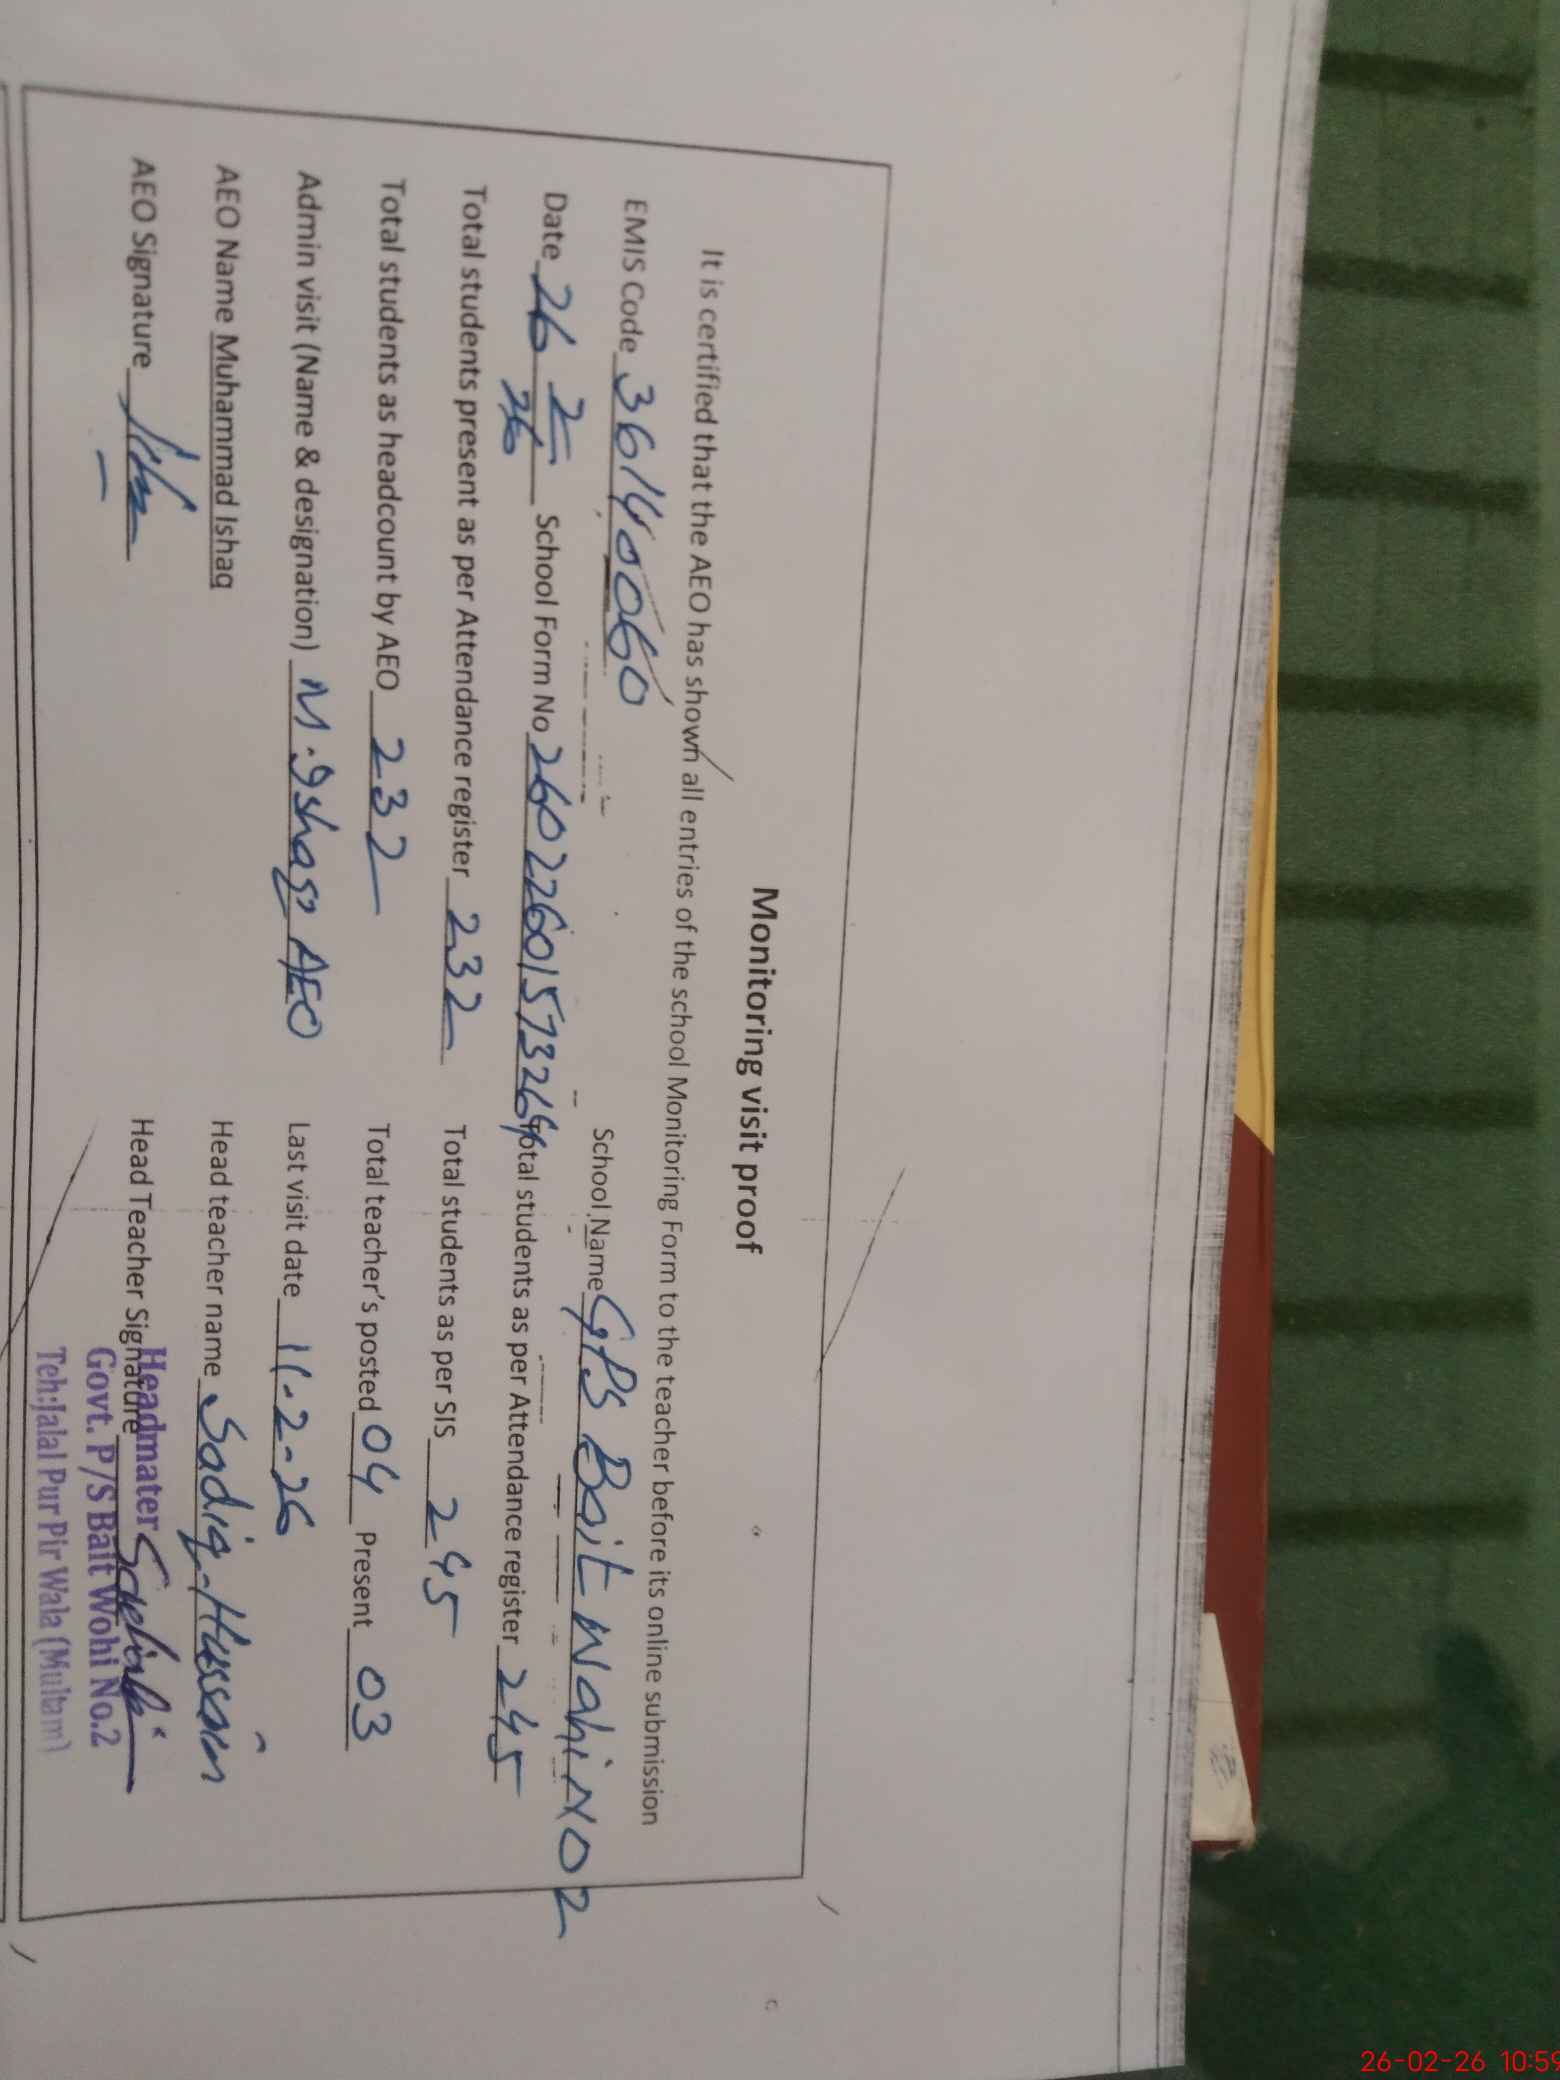 Monitoring visit proof
It is certified that the AEO has shown all entries of the school Monitoring Form to the teacher before its online submission
EMIS Code 36140060 School Name GPS Bait Wahi NO 2
Date 26 2 26 School Form No 26022601573269 Total students as per Attendance register 245
Total students present as per Attendance register 232 Total students as per SIS 245
Total students as headcount by AEO 232 Total teacher's posted 04 Present 03
Admin visit (Name & designation) M. Ishaq AEO Last visit date 11-2-26
AEO Name Muhammad Ishaq Head teacher name Sadiq Hussain
AEO Signature Head Teacher Signature
Headmater
Govt. P/S Bait Wohi No.2
Teh:Jalal Pur Pir Wala (Multam)
26-02-26 10:59